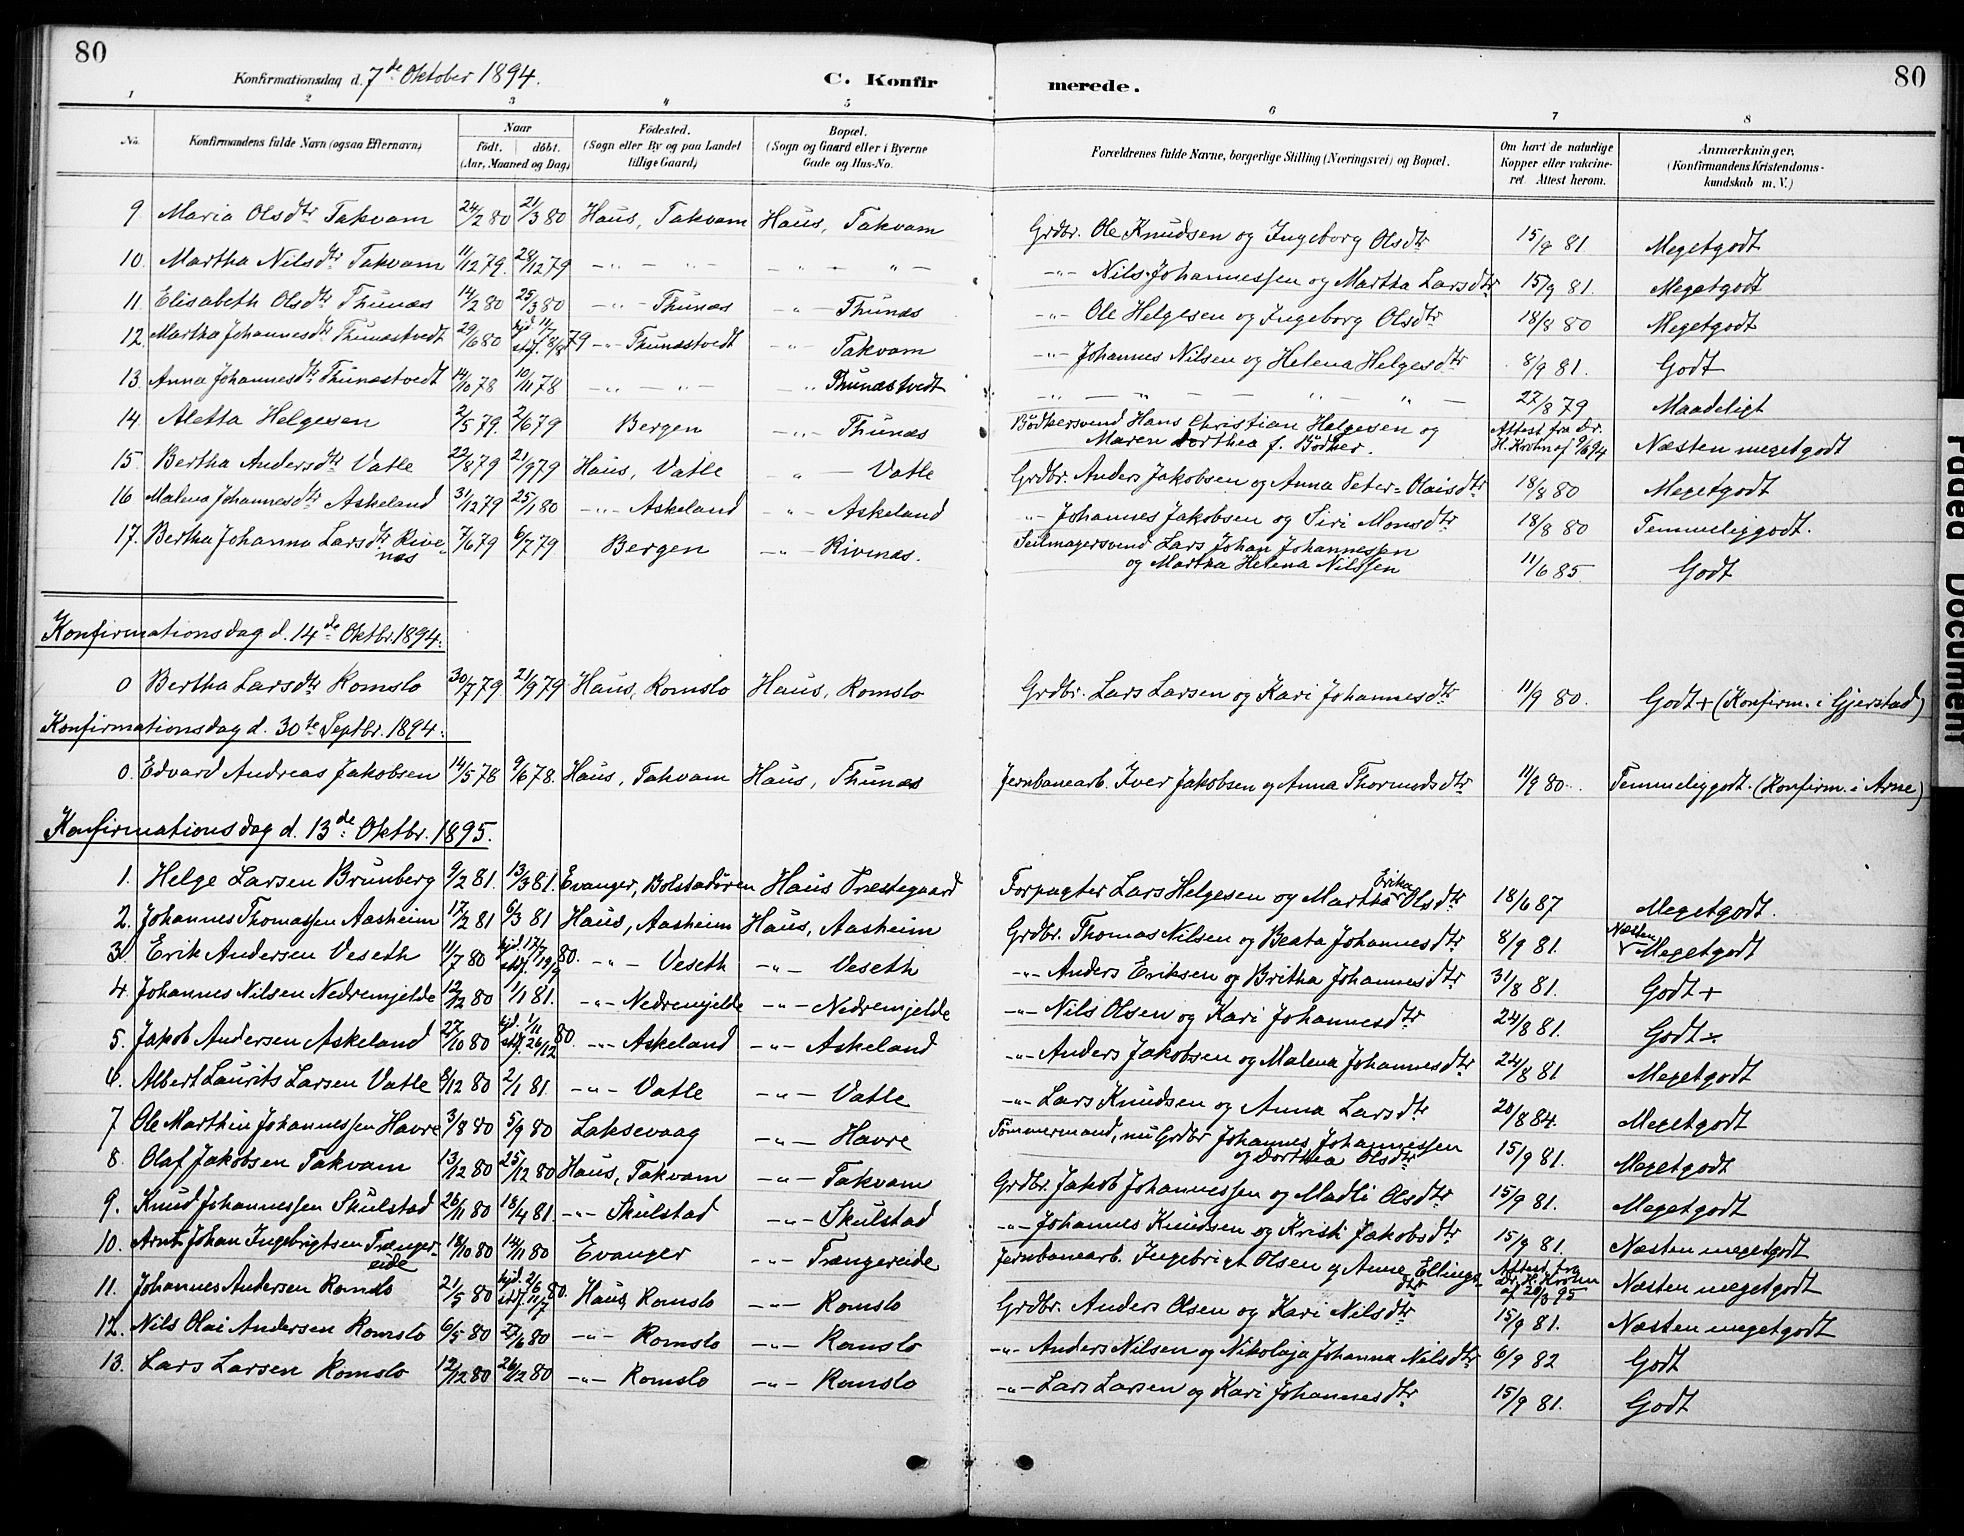 80
Konfirmationsdag d. 7de Oktober 1894.
C. Konfirmerede.
80
1 2 3 4 5 6 7 8
No. | Konfirmandens fulde Navn (ogsaa Efternavn) | Naar födt. döbt. (Aar, Maaned og Dag) | Födested. (Sogn eller By og paa Landet tillige Gaard) | Bopæl. (Sogn og Gaard eller i Byerne Gade og Hus-No. | Forældrenes fulde Navne, borgerlige Stilling (Næringsvei) og Bopæl. | Om havt de naturlige Kopper eller vakcineret. Attest herom. | Anmærkninger. (Konfirmandens Kristendomskundskab m. V.)
9 Maria Olsdtr Takvam 24/2 80 21/3 80 Haus, Takvam Haus, Takvam Grdbr. Ole Knudsen og Ingeborg Olsdtr 15/9 81 Megetgodt
10. Martha Nilsdtr Takvam 11/12 79. 28/12 79 — " — " — — " — " — — " — Nils Johannessen og Martha Larsdtr 15/9 81. Megetgodt
11. Elisabeth Olsdtr Thunæs 14/2 80 25/3 80 — " — Thunæs — " — Thunæs — " — Ole Helgesen og Ingeborg Olsdtr 18/8 80 Megetgodt
12. Martha Johannesdtr Thunæstvedt 29/6 80 hjd. 11/7 stdf. 8/8 79 — " — Thunæstvedt — " — Takvam — " — Johannes Nilsen og Helena Helgesdtr 8/9 81. Godt
13. Anna Johannesdtr Thunæstvedt 14/10 78 10/11 78 — " — " — — " Thunæstvedt " — " — — " — " — 27/8 79 Maadeligt
14. Aletta Helgesen 2/5 79. 2/6 79 Bergen — " — Thunæs Bødkersvend Hans Christian Helgesen og Maren Dorthea f. Bødker. Attest fra Dr. H. Krohn af 9/6 94 Næsten megetgodt
15. Bertha Andersdtr Vatle 22/8 79 21/9 79 Haus, Vatle " — Vatle Grdbr. Anders Jakobsen og Anna Peter-Olaisdtr 18/8 80 Megetgodt
16 Malena Johannesdtr Askeland 31/12 79 25/1 80 — " — Askeland — " — Askeland — " — Johannes Jakobsen og Siri Monsdtr 18/8 80 Temmeliggodt.
17. Bertha Johanna Larsdtr Rivenæs 7/6 79 6/7 79 Bergen — " — Rivenæs. Seilmagersvend Lars Johan Johannessen og Martha Helena Nilssen 11/6 85 Godt
Konfirmationsdag d. 14de Oktbr. 1894.
0 Bertha Larsdtr Romslo 30/7 79 21/9 79 Haus, Romslo Haus, Romslo Grdbr. Lars Larsen og Kari Johannesdtr 11/9 80. Godt + (Konfirm. i Gjerstad)
Konfirmationsdag d. 30te Septbr. 1894.
0. Edvard Andreas Jakobsen 14/5 78 9/6 78. Haus, Takvam Haus, Thunæs Jernbanearb. Iver Jakobsen og Anna Thormodsdtr 11/9 80. Temmeliggodt. (Konfirm. i Arne)
Konfirmationsdag d. 13de Oktbr. 1895.
1. Helge Larsen Brunberg 9/2 81. 13/3 81. Evanger, Bolstadøren Haus Præstegaard Forpagter Lars Helgesen og Martha Erika Olsdtr 18/6 87 Megetgodt.
2. Johannes Thomassen Aasheim 17/2 81 6/3 81 Haus, Aasheim Haus, Aasheim Grdbr. Thomas Nilsen og Beata Johannesdtr 8/9 81. Næsten Megetgodt
3 Erik Andersen Veseth 11/7 80 hjd. 17/7 stdf. 19/9 80. — " — Veseth — " — Veseth — " — Anders Eriksen og Britha Johannesdtr 31/8 81. Godt +
4. Johannes Nilsen Nedremjelde 12/12 80 1/1 81. — " — Nedremjelde — " — Nedremjelde — " — Nils Olsen og Kari Johannesdtr 24/8 81. Godt ÷
5. Jakob Andersen Askeland 27/10 80 hjd. 1/11 stdf. 26/12 80. — " — Askeland — " — Askeland — " — Anders Jakobsen og Malena Johannesdtr 24/8 81 Megetgodt
6. Albert Laurits Larsen Vatle 8/12 80 2/1 81. — " — Vatle — " — Vatle — " — Lars Knudsen og Anna Larsdtr 20/8 84. Megetgodt
7 Ole Marthin Johannessen Havre 3/8 80 5/9 80 Laksevaag — " — Havre Tømmermand, nu Grdbr Johannes Johannessen og Dorthea Olsdtr 15/9 81. Megetgodt
8. Olaf Jakobsen Takvam 13/12 80 25/12 80 Haus, Takvam — " — Takvam Grdbr. Jakob Johannessen og Madli Olsdtr 15/9 81. Megetgodt
9. Knud Johannessen Skulstad 26/11 80 18/4 81. — " — Skulstad — " — Skulstad — " — Johannes Knudsen og Kristi Jakobsdtr 15/9 81. Næsten megetgodt
10. Arnt Johan Ingebrigtsen Trængereide 18/10 80 14/11 80 Evanger — " — Trængereide Jernbanearb. Ingebrigt Olsen og Anne Ellingsdtr Attest fra Dr. H. Krohn af 20/3 95 Næsten megetgodt
11. Johannes Andersen Romslo 21/5 80 hjd. 2/6 stdf. 11/7 80. Haus Romslo — " — Romslo Grdbr. Anders Olsen og Kari Nilsdtr 15/9 81. Næsten megetgodt
12. Nils Olai Andersen Romslo 6/5 80 27/6 80 — " — Romslo — " — Romslo — " — Anders Nilsen og Nikolaja Johanna Nilsdtr 6/9 82 Godt
13. Lars Larsen Romslo 12/12 80 26/12 80 — " — Romslo — " — Romslo — " — Lars Larsen og Kari Johannesdtr 15/9 81. Godt
Faded Document